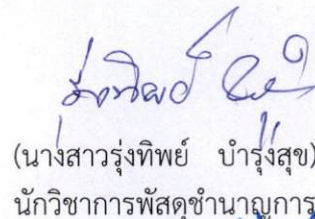 (นางสาวรุ่งทิพย์ บำรุงสุข)
นักวิชาการพัสดุชำนาญการ